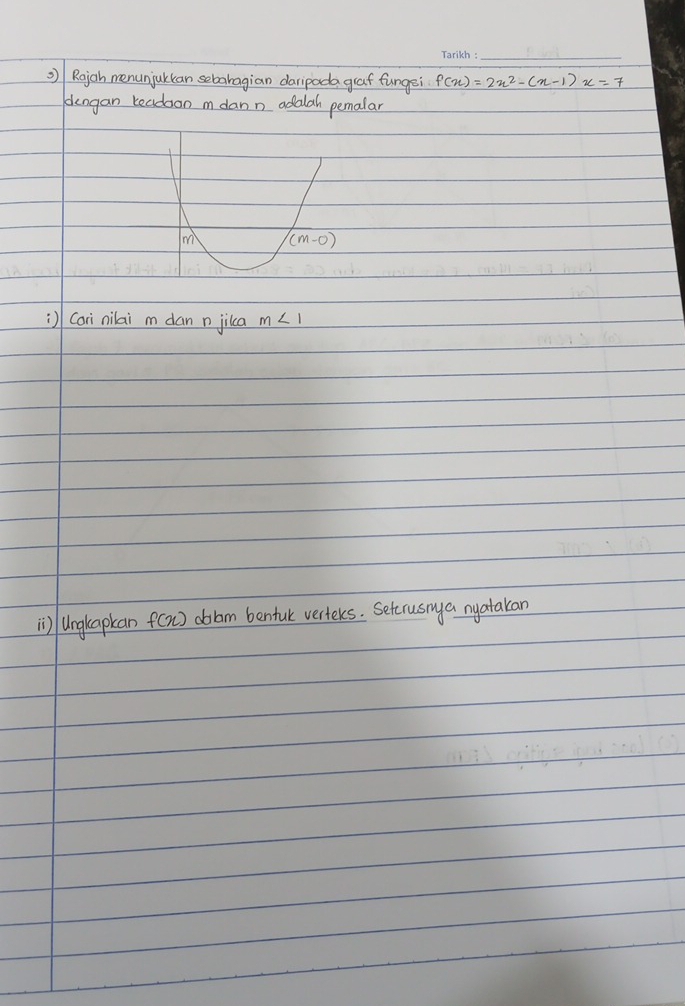 Tarikh :
3) Rajah menunjukkan sebahagian daripada graf fungsi f(x) = 2x² - (n-1) x = 7
dengan keadaan m dan n adalah pemalar
m
(m-0)
i) Cari nilai m dan n jika m < 1
ii) Ungkapkan f(x) dalam bentuk verteks. Seterusnya nyatakan